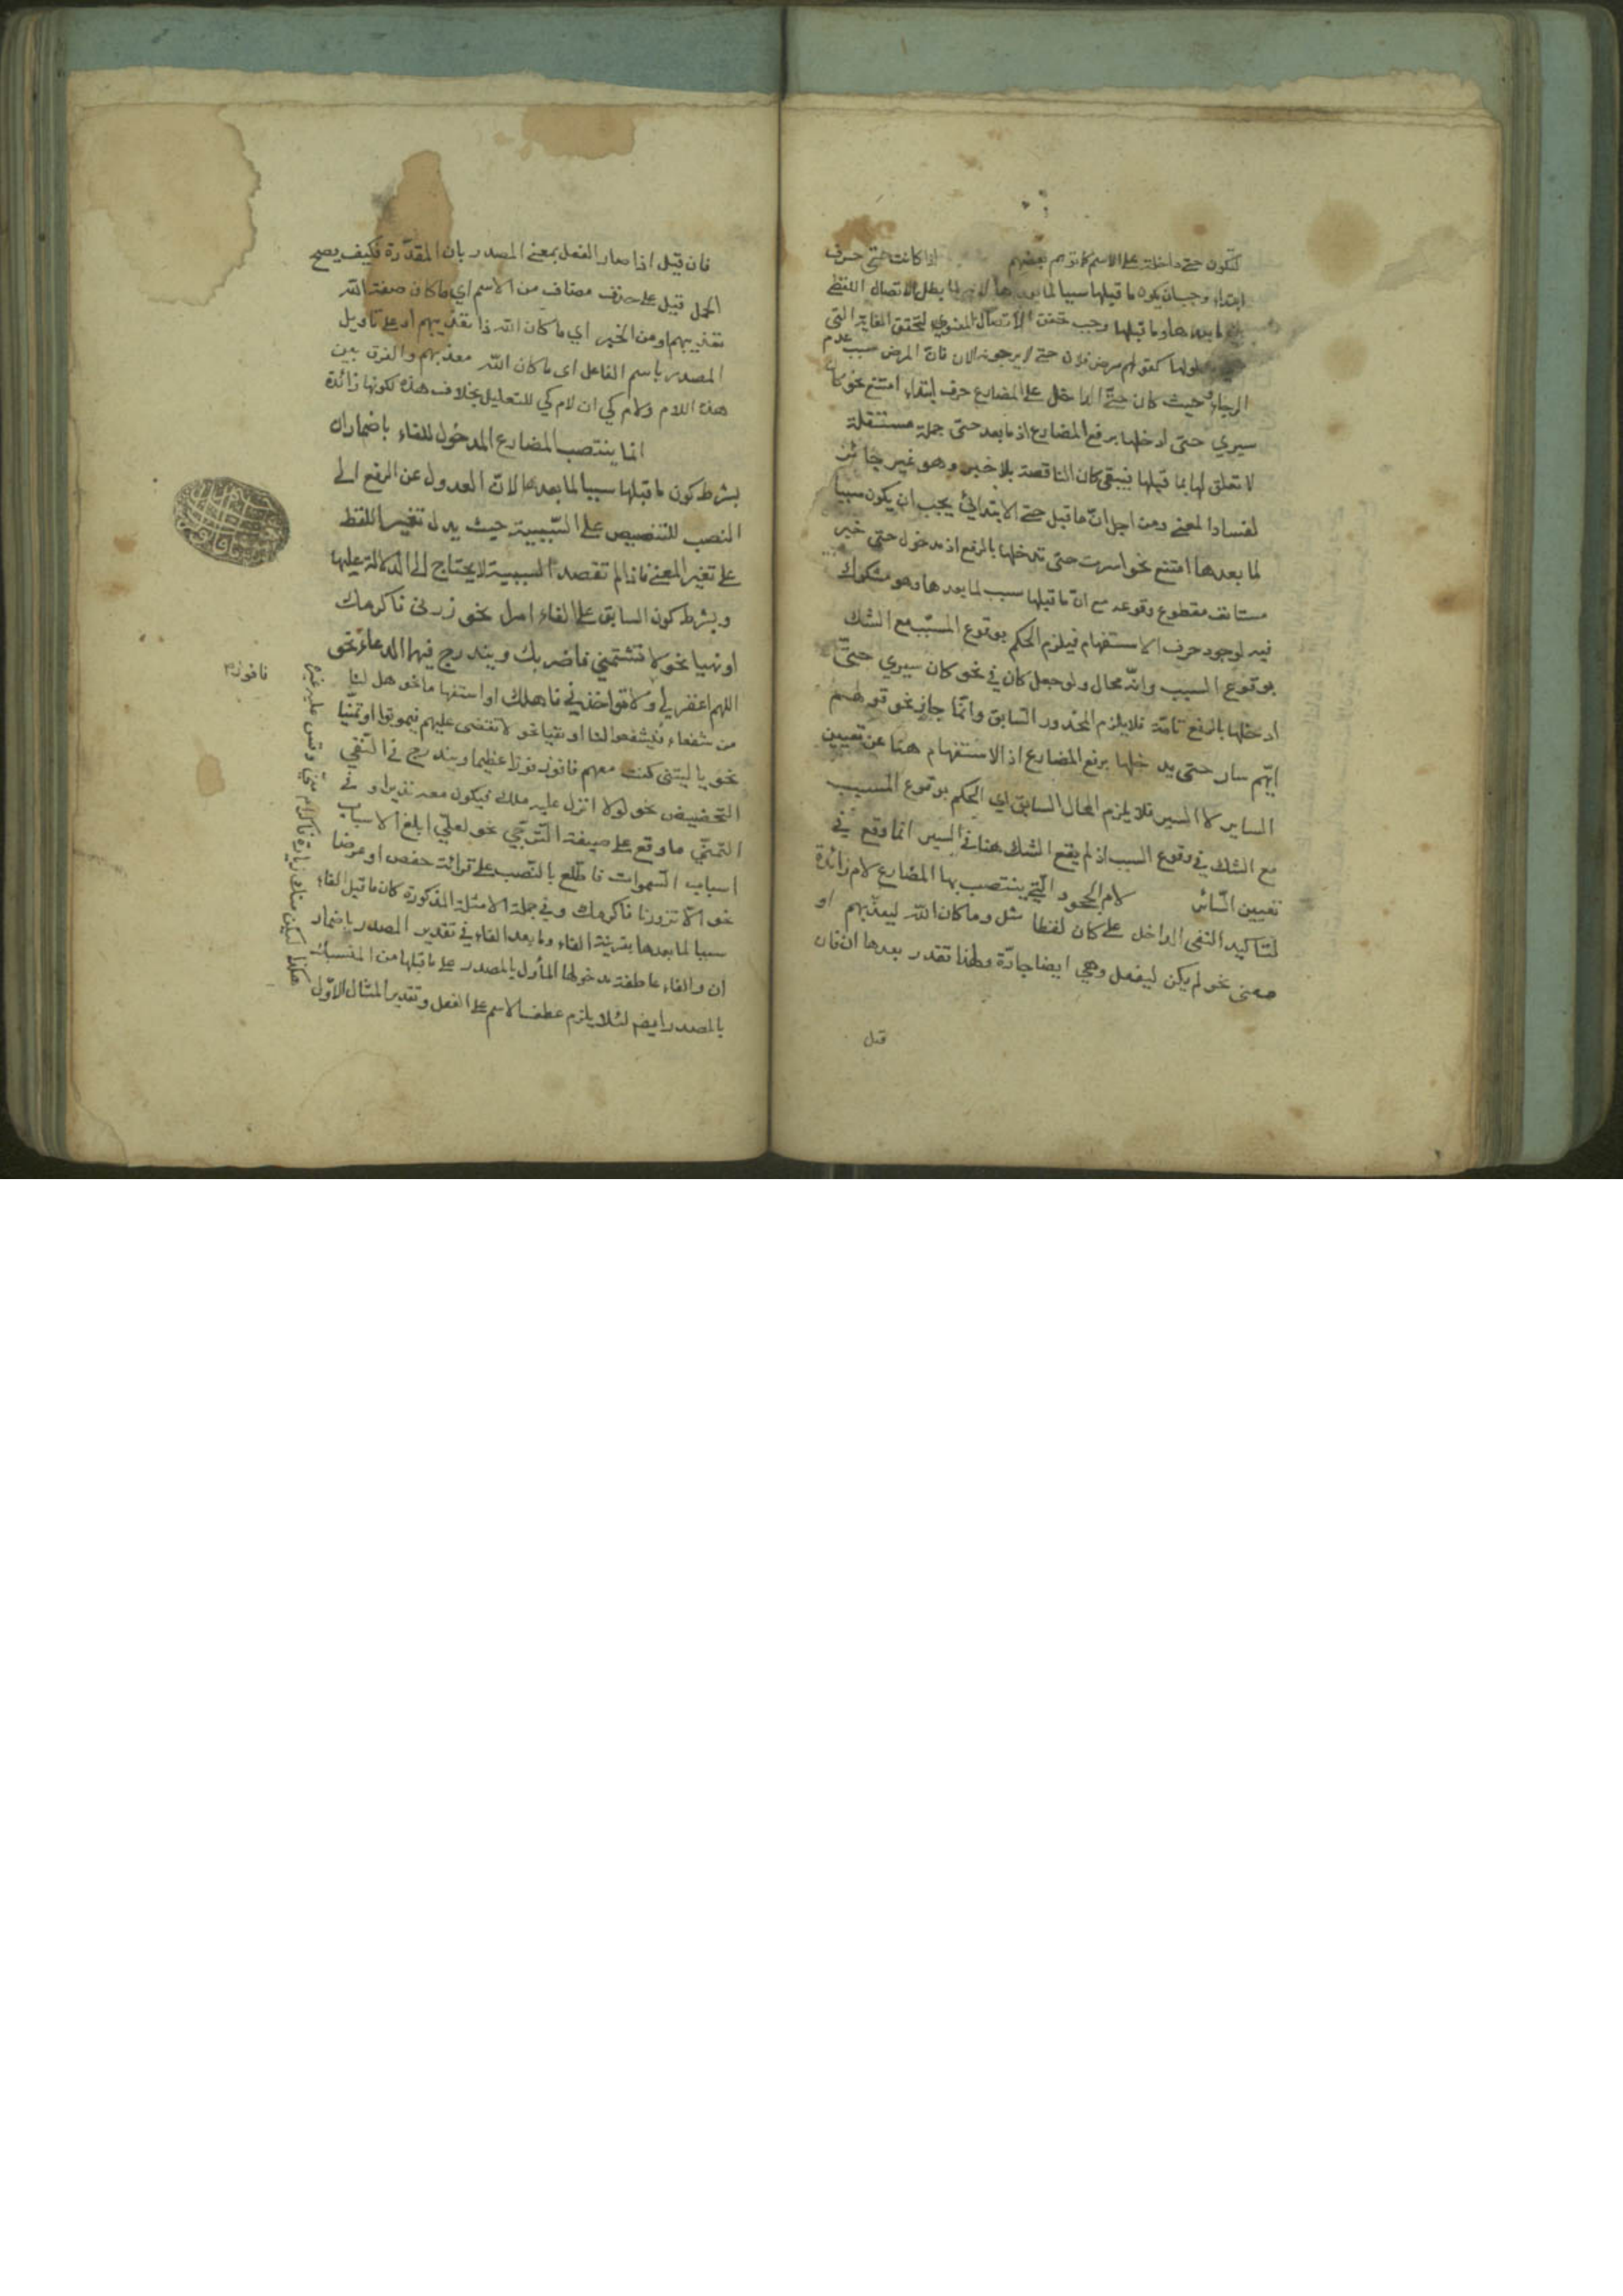 لتكون حتى داخلة على الاسم كما توهم بعضهم اذا كانت حتى حرف
ابتداء وجب ان يكون ما قبلها سببا لما بعدها لانه لما بطل الاتصال اللفظي
ما بعدها وما قبلها وجب تحقق الاتصال المعنوي لتحقق الغاية التي
مدلولها كقولهم مرض فلان حتى لا يرجونه الان فان المرض سبب عدم
الرجاء وحيث كان حتى الداخل على المضارع حرف ابتداء امتنع نحو كان
سيري حتى ادخلها برفع المضارع اذ ما بعد حتى جملة مستقلة
لا تعلق لها بما قبلها فيبقى كان الناقصة بلا خبر وهو غير جائز
لفساد المعنى ومن اجل ان ما قبل حتى الابتدائي يجب ان يكون سببا
لما بعدها امتنع نحو اسرت حتى تدخلها بالرفع اذ مدخول حتى خبر
مستانف مقطوع وقوعه مع ان ما قبلها سبب لما بعدها وهو مشكوك
فيه لوجود حرف الاستفهام فيلزم الحكم بوقوع المسبب مع الشك
بوقوع السبب وانه محال ولو جعل كان في نحو كان سيري حتى
ادخلها بالرفع تامة فلا يلزم المحذور السابق وانما جاز نحو قولهم
ايهم سار حتى يدخلها برفع المضارع اذ الاستفهام هنا عن تعيين
الساير لا السير فلا يلزم المحال السابق اي الحكم بوقوع المسبب
مع الشك في وقوع السبب اذ لم يقع الشك هنا في السير انما وقع في
تعيين السائر لام الجحود التي ينتصب بها المضارع لام زائدة
لتاكيد النفى الداخل على كان لفظا مثل وما كان الله ليعذبهم او
معنى نحو لم يكن ليفعل وهي ايضا جارة ولهذا تقدر بعدها ان فان
قيل
فان قيل اذا صار الفعل بمعنى المصدر بان المقدرة فكيف يصح
الحمل قيل على حذف مضاف من الاسم اي ما كان صفة الله
تعذيبهم او من الخبر اي ما كان الله ذا تعذيبهم او على تاويل
المصدر باسم الفاعل اى ما كان الله معذبهم والفرق بين
هذه اللام ولام كي ان لام كي للتعليل بخلاف هذه لكونها زائدة
انما ينتصب المضارع المدخول للفاء باضمار ان
بشرط كون ما قبلها سببا لما بعدها لان العدول عن الرفع الى
النصب للتنصيص على السببية حيث يدل تغير اللفظ
على تغير المعنى فاذا لم تقصد السببية لا يحتاج الى الدلالة عليها
وبشرط كون السابق على الفاء امرا نحو زرنى فاكرمك
او نهيا نحو لا تشتمني فاضربك ويندرج فيهما الدعاء نحو
اللهم اغفر لي ولا تؤاخذني فاهلك او استفهاما نحو هل لنا
من شفعاء فيشفعوا لنا او نفيا نحو لا تقضى عليهم فيموتوا او تمنيا
نحو يا ليتنى كنت معهم فافوز فوزا عظيما ويندرج في النفي
التحضيض نحو لولا انزل عليه ملك فيكون معه نذيرا وفى
التمنى ما وقع على صيغة الترجي نحو لعلي ابلغ الاسباب
اسباب السموات فاطلع بالنصب على قرائة حفص او عرضا
نحو الا تزورنا فاكرمك وفي جملة الامثلة المذكورة كان ما قبل الفاء
سببا لما بعدها بقرينة الفاء وما بعد الفاء في تقدير المصدر باضمار
ان والفاء عاطفة مدخولها المأول بالمصدر على ما قبلها من المنسبك
بالمصدر ايضا لئلا يلزم عطف الاسم على الفعل وتقدير المثال الاول
هكذا ليكن منك زيارة فاكرام مني وقس عليه غيره